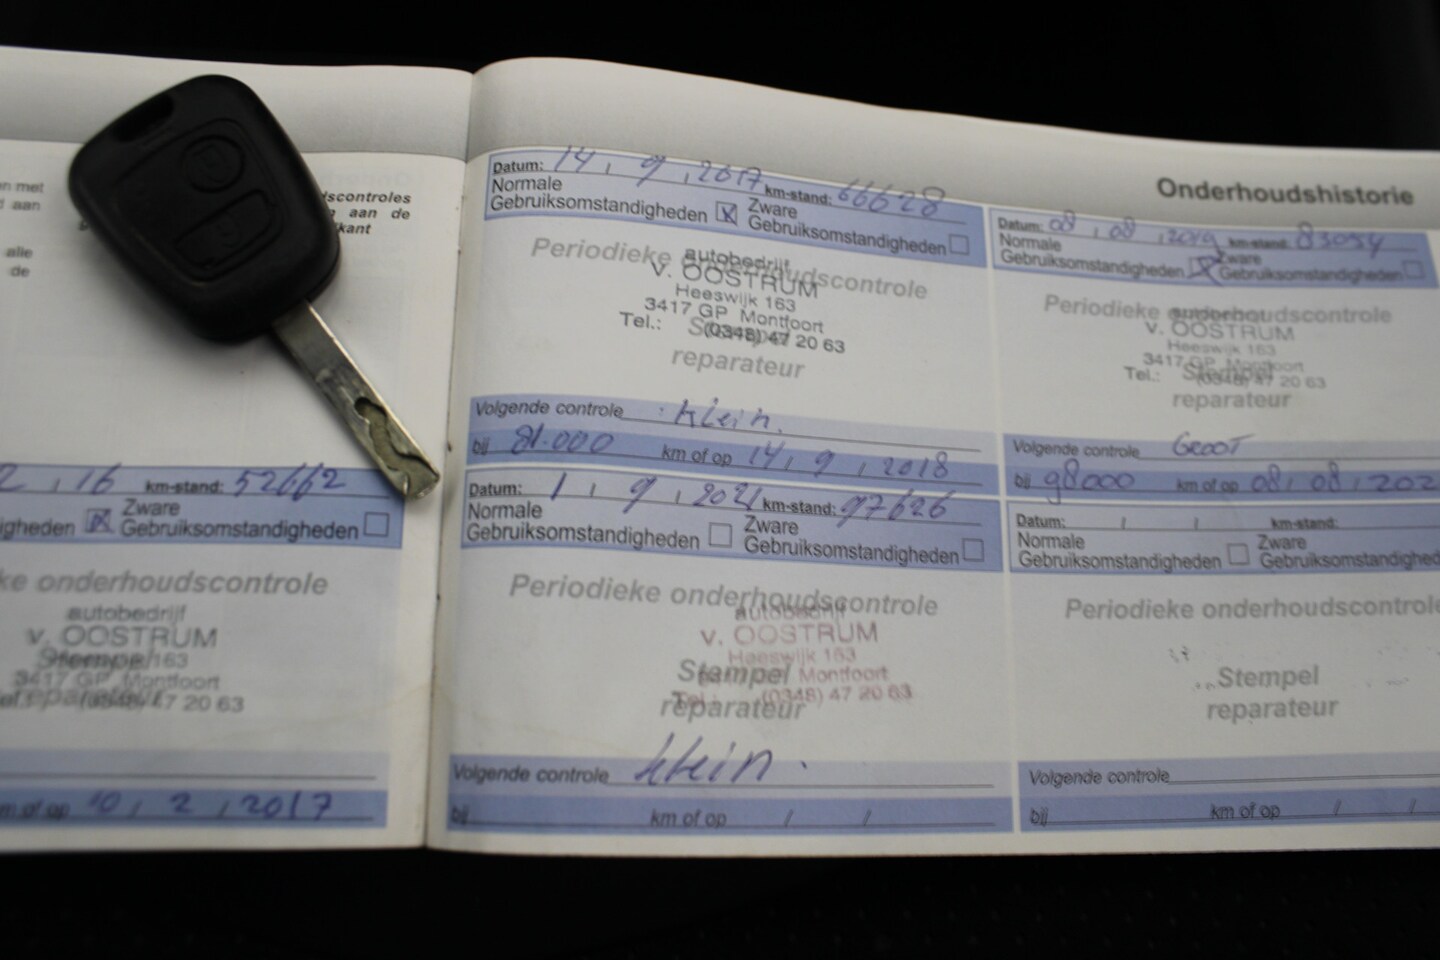 en met
aan
alle
de
scontroles
aan de
kant
2 , 16 km-stand: 52662
igheden Zware
Gebruiksomstandigheden
ke onderhoudscontrole
autobedrijf
v. OOSTRUM
Stempel 163
3417 GP Montfoort
reparateur (0348) 47 20 63
m of op 10 , 2 , 2017
Datum: 14 , 9 , 2017 km-stand: 66628
Normale Zware
Gebruiksomstandigheden Gebruiksomstandigheden
Periodieke onderhoudscontrole
autobedrijf
v. OOSTRUM
Heeswijk 163
3417 GP Montfoort
Tel.: Stempel (0348) 47 20 63
reparateur
Volgende controle Klein.
bij 81.000 km of op 14 , 9 , 2018
Datum: 1 , 9 , 2021 km-stand: 97626
Normale Zware
Gebruiksomstandigheden Gebruiksomstandigheden
Periodieke onderhoudscontrole
autobedrijf
v. OOSTRUM
Heeswijk 163
Stempel Montfoort
Tel.: (0348) 47 20 63
reparateur
Volgende controle klein.
bij km of op / /
Onderhoudshistorie
Datum: 08 , 08 , 2019 km-stand: 83094
Normale Zware
Gebruiksomstandigheden Gebruiksomstandigheden
Periodieke onderhoudscontrole
autobedrijf
v. OOSTRUM
Heeswijk 163
3417 GP Montfoort
Tel.: Stempel (0348) 47 20 63
reparateur
Volgende controle GROOT
bij 98000 km of op 08 , 08 , 202
Datum: / / km-stand:
Normale Zware
Gebruiksomstandigheden Gebruiksomstandighed
Periodieke onderhoudscontrole
Stempel
reparateur
Volgende controle
bij km of op / /